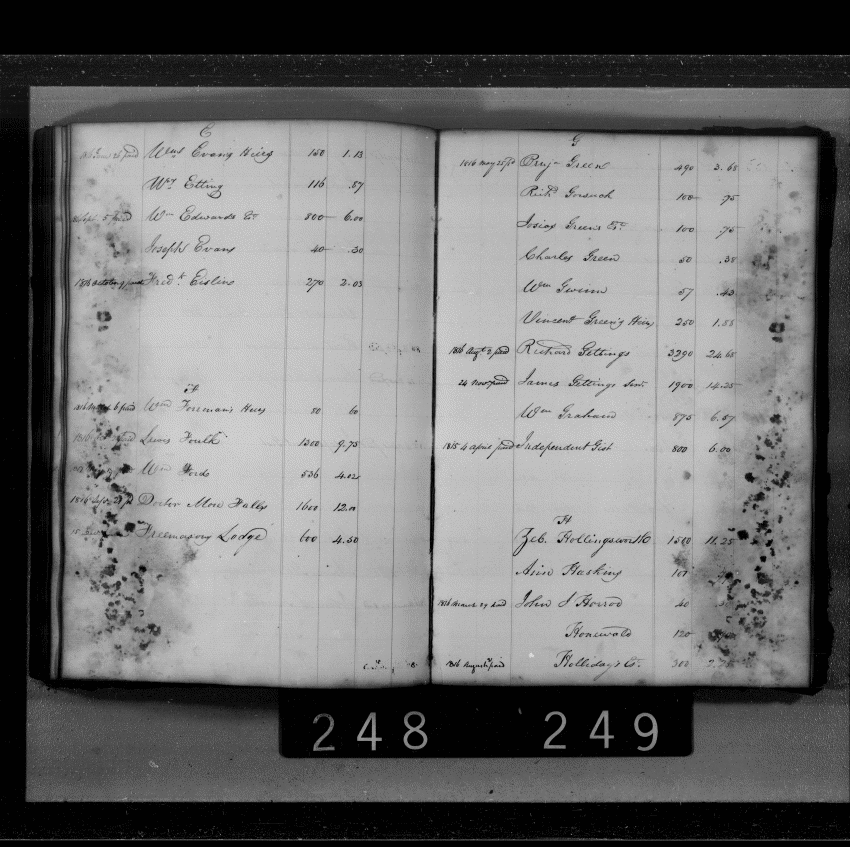 E
Wms Evans Heirs 150 1.13
Wm Etting 116 .87
Wm Edwards Est. 800 6.00
Joseph Evans 40 .30
1816 paid Fredk. Eislin 270 2.03
F
paid Wm Foreman's Heirs 80 60
Lewis Foulk 1300 9.75
Wm Fords 536 4.02
1816 Sept 21 pd Doctor Moore Falls 1600 12.00
Freemasons Lodge 600 4.50
G
1816 May 25 pd Benjn Green 490 3.68
Richd. Gorsuch 100 75
Josias Greens Est. 100 .75
Charles Green 50 .38
Wm Gwinn 57 .43
Vincent Green's Heirs 250 1.88
1816 Augt 3 paid Richard Gittings 3290 24.68
24 Novr paid James Gittings Senr 1900 14.25
Wm Graham 875 6.57
1815 4 April paid Independent Gist 800 6.00
H
Zeb. Hollingsworth 1500 11.25
Ann Haskins
1816 March 29 paid John S Horrod 40
Honewald 120
1816 August paid Holliday's Est. 300 2.
248 249